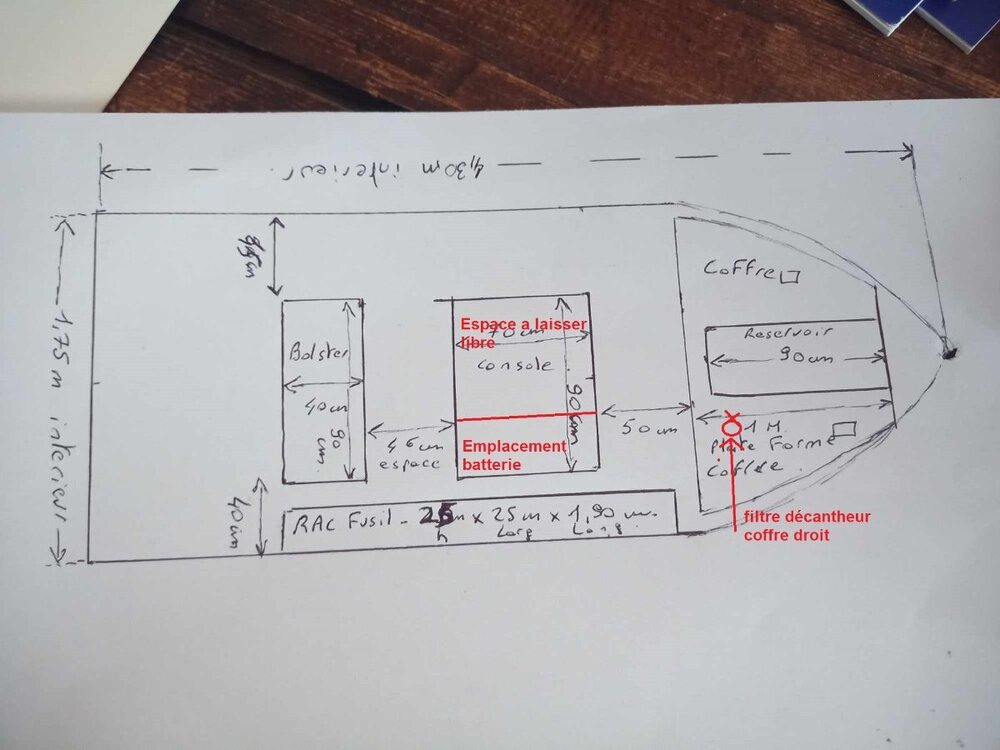 4,30 m interieur.
1,75 m interieur
Coffre
Reservoir
90 cm
Espace a laisser
libre
70 cm
console
90 cm
Bolster
40 cm
90 cm
46 cm
espace
50 cm
Emplacement
batterie
1 M.
Plate Forme
Coffre.
40 cm
RAC Fusil - x 25 m x 1,90 m.
h Larg Long.
filtre décantheur
coffre droit